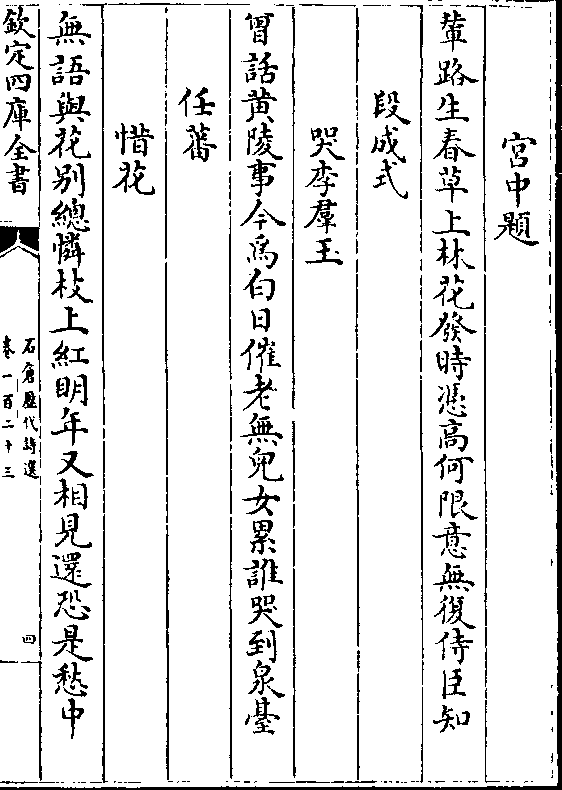 宮中題
輦路生春草上林花發時憑高何限意無復侍臣知
段成式
哭李羣玉
曾話黄陵事今爲白日催老無兒女累誰哭到泉臺
任蕃
惜花
無語與花别總憐枝上紅明年又相見還恐是愁中
欽定四庫全書
石倉歷代詩選
卷一百二十三
四